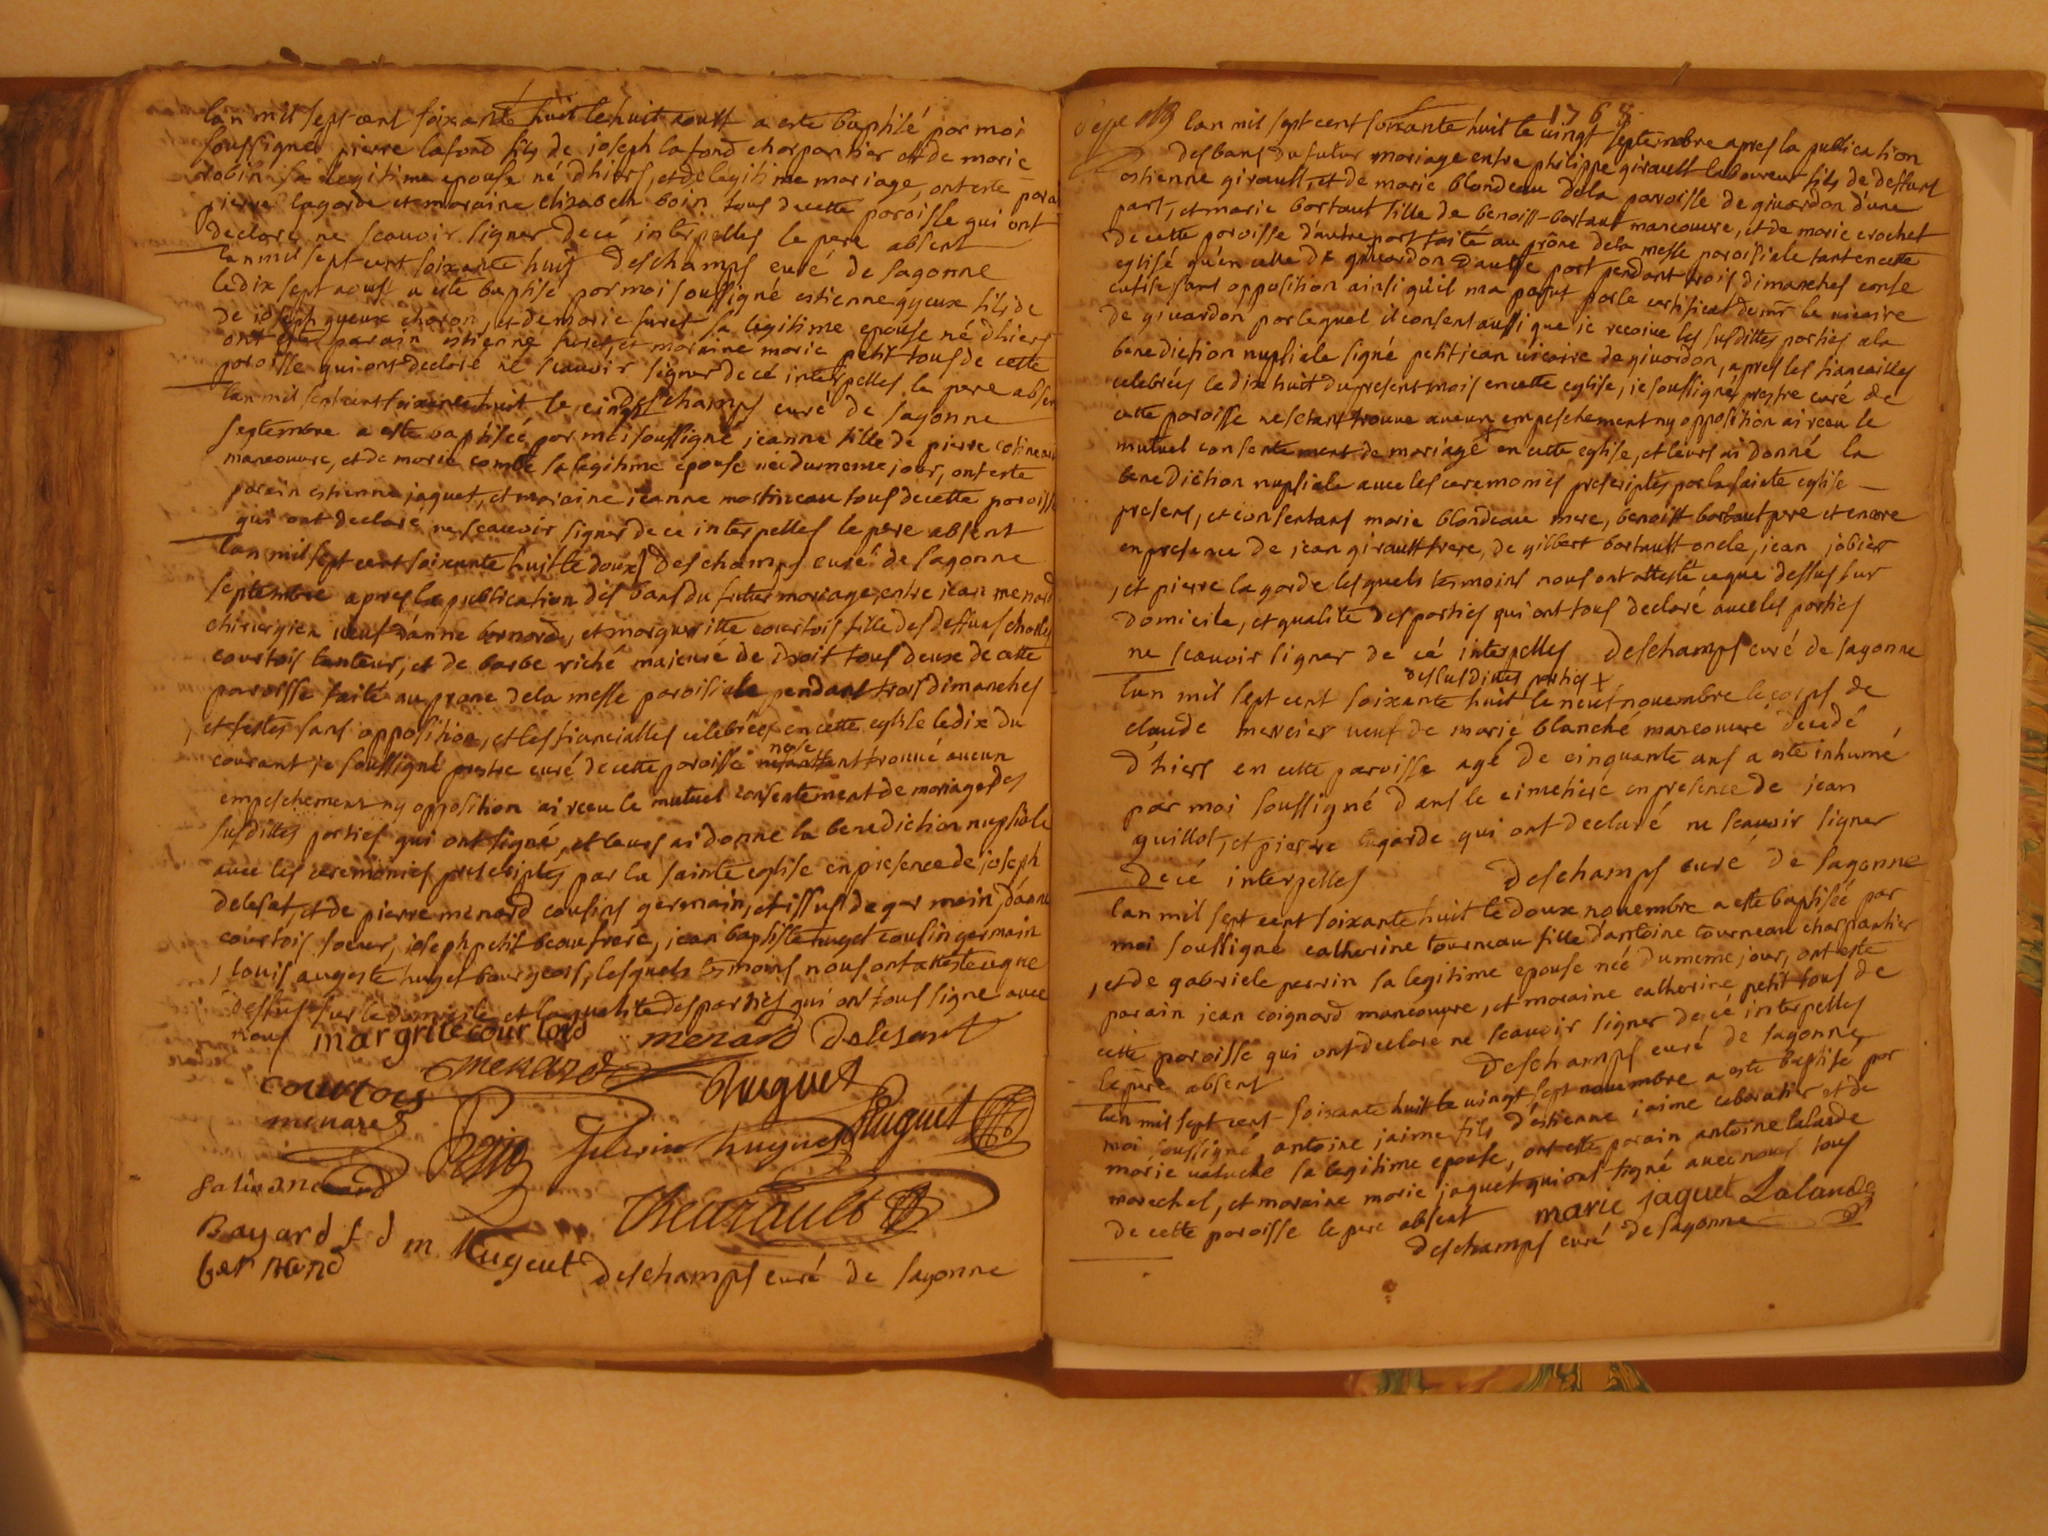 lan mil sept cens soixante huit le huit aoust a este baptisé par moi
soussigné pierre lafond fils de joseph lafond charpantier et de marie
robin sa legitime epouse né d'hiers, et de legitime mariage, ont este para
pierre lagarde et maraine elizabeth boin tous de cette paroisse qui ont
declaré ne scavoir signer de cé interpelles le pere absent
deschamps curé de sagonne
lan mil sept cent soixante huit
le dix sept aoust a este baptisé par moi soussigné estienne gyeux fils de
de joseph gyeux charon, et de marie furet sa legitime epouse né d'hiers
ont este parain estienne furet, et maraine marie petit tous de cette
paroisse qui ont declaré ne scavoir signer de cé interpelles le pere absen
deschamps curé de sagonne
lan mil sept cent soixante huit le cinq
septembre a este baptiséé par moi soussigné jeanne fille de pierre
manoeuvre, et de marie combe sa legitime epouse née du meme jour, ont este
parain estienne jaquet, et maraine jeanne martineau tous de cette paroisse
qui ont declaré ne scavoir signer de ce interpelles le pere absent
deschamps curé de sagonne
lan mil sept cent soixante huit le doux
septembre apres la publication des bans du futur mariage entre jean menard
chirurgien veuf d'anne bernard, et margueritte courtois fille des deffuns charles
courtois tanteur, et de barbe riché majeure de droit tous deux de cette
paroisse faite au prone de la messe paroisiale pendant trois dimanches
, et festes sans opposition, et les fiancialles celebréés en cette eglise le dix du
courant je soussigné prestre curé de cette paroisse ne se estant trouvé aucun
empeschement ny opposition ai receu le mutuel consentement de mariage des
susdittes parties qui ont signé, et leurs ai donné la benediction nuptiale
avec les ceremonies prescriptes par la sainte eglise en presence de joseph
delesat, et de pierre menard cousins germain, et issus de germain, d'anne
courtois soeur, joseph petit beaufrere, jean baptiste huget cousin germain
, louis auguste huget bourgeois, lesquels tesmoins nous ont atteste ce que
dessus sur le domicile et la qualité des parties qui ont tous signe avec
nous margrite courtois menard delesant
menard
courtois huguet
menard petit huguet huguet
Bayard
bernard m hugeut deschamps curé de sagonne
1768
lan mil sept cent soixante huit le vingt septembre apres la publication
des bans du futur mariage entre philippe girault laboureur fils de deffunt
estienne girault, et de marie blondeau de la paroisse de givardon d'une
part, et marie bartaut fille de benoist bartaut manoeuvre, et de marie crochet
de cette paroisse d'autre part faité au prône de la messe paroisiale tant en cette
eglise qu'en celle de givardon d'autre part pendant trois dimanches conse
cutifs sans opposition ainsi quil ma parut par le certificat de mr le vicaire
de givardon par lequel il consent aussi que je recoive les susdittes parties a la
benediction nuptiale signé petitjean vicaire de givardon, apres les fiancailles
celebrées le dix huit du present mois en cette eglise, je soussigné prestre curé de
cette paroisse ne s'etant trouvé aucun empeschement ny opposition ai receu le
mutuel consentement de mariage + en cette eglise, et leurs ai donné la
benediction nuptiale avec les ceremonies prescriptes par la sainte eglise
presens, et consentans marie blondeau mere, benoist bartaut pere et encore
en presence de jean girault frere, de gilbert bartault oncle, jean jobiers
, et pierre lagarde lesquels tesmoins nous ont attesté ce que dessus sur
domicile, et qualité des parties qui ont tous declaré avec les parties
ne scavoir signer de cé interpelles deschamps curé de sagonne
des susdittes parties +
lan mil sept cent soixante huit le neuf novembre le corps de
claude mercier veuf de marie blanché manoeuvre decedé
d'hiers en cette paroisse agé de cinquante ans a este inhumé
par moi soussigné dans le cimetiere en presence de jean
guillot, et pierre lagarde qui ont declaré ne scavoir signer
de cé interpelles deschamps curé de sagonne
lan mil sept cent soixante huit le doux novembre a este baptisée par
moi soussigné catherine tourneau fille d'antoine tourneau charpantier
, et de gabriele perrin sa legitime epouse née du meme jour, ont este
parain jean coignard manoeuvre, et maraine catherine petit tous de
cette paroisse qui ont declaré ne scavoir signer de cé interpelles
le pere absent deschamps curé de sagonne
lan mil sept cent soixante huit le vingt sept novembre a este baptisé par
moi soussigné antoine jaime fils d'estienne jaime cabaratier et de
marie sa legitime epouse, ont este parain antoine lalande
marechal, et maraine marie jaquet qui ont signé avec nous tous
de cette paroisse le pere absent marie jaquet Lalande
deschamps curé de sagonne